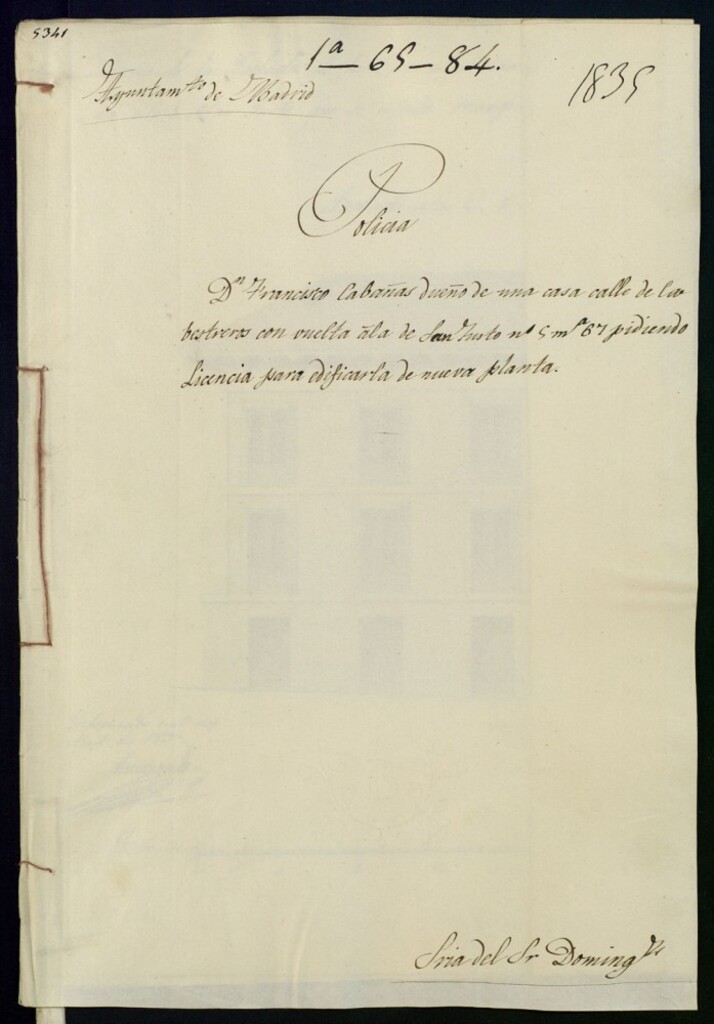 5341
1ª — 65 — 84.
Ayuntamto de Madrid
1835
Policia
Dn Francisco Cabañas dueño de una casa calle de Ca
bestreros con vuelta á la de San Justo no 5 mna 67 pidiendo
Licencia para edificarla de nueva planta.
Sria del Sr Doming